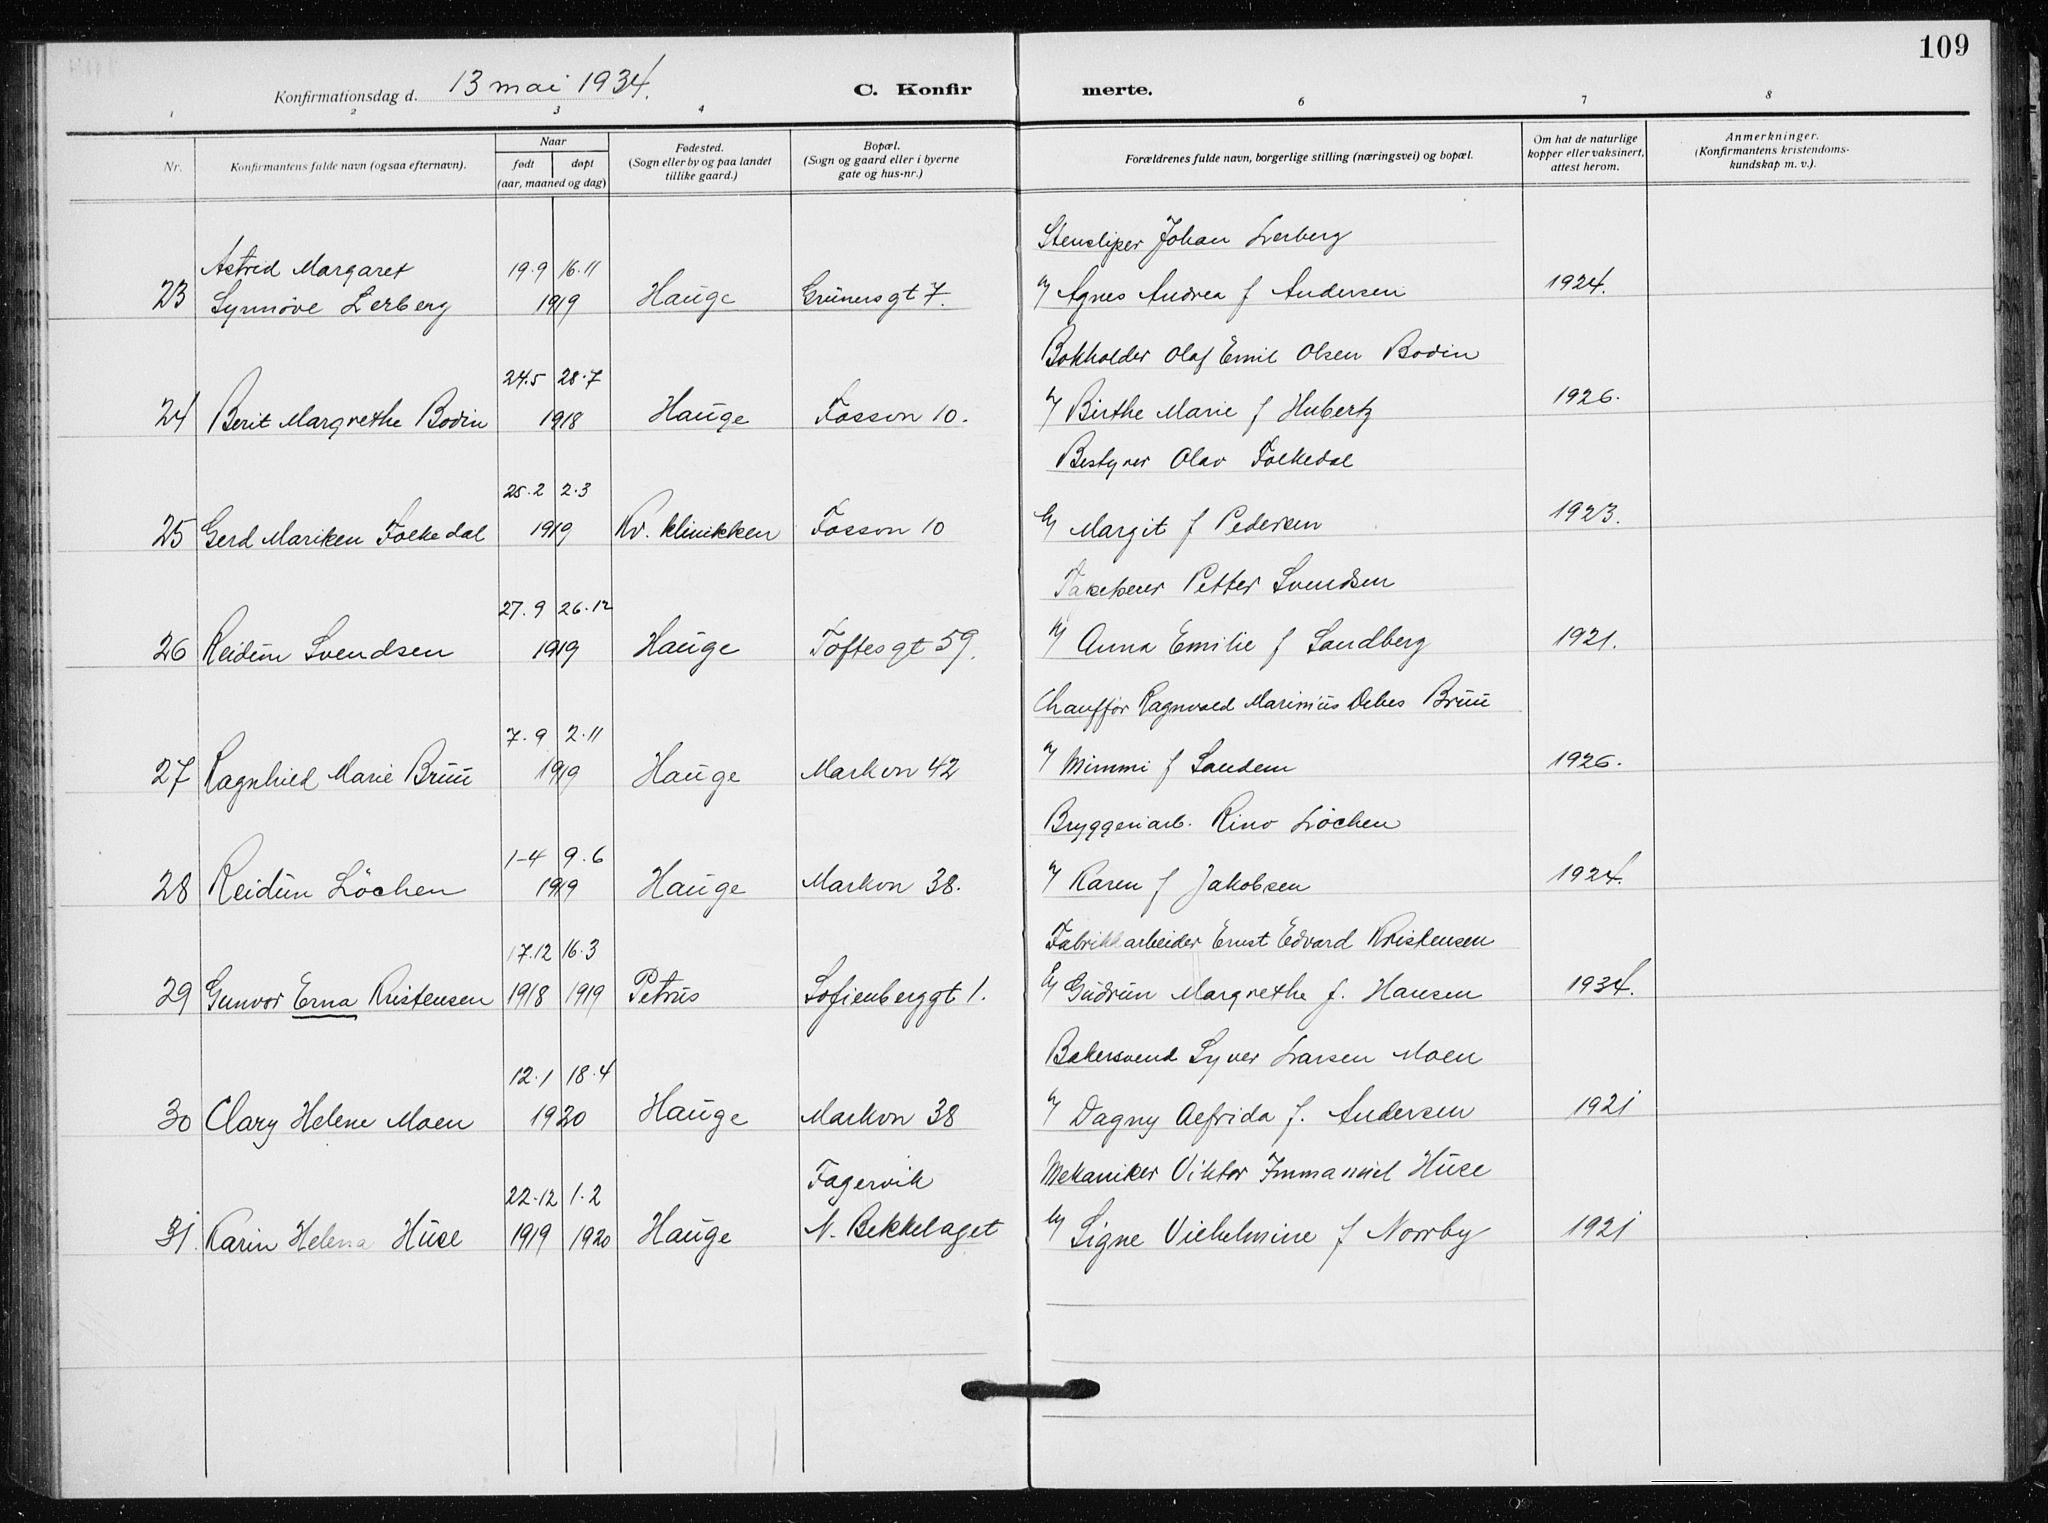 109
Konfirmationsdag d. 13 mai 1934.
C. Konfir merte.
1 2 3 4 6 7 8
Nr.
Konfirmantens fulde navn (ogsaa efternavn).
Naar
født døpt
(aar, maaned og dag)
Fødested.
(Sogn eller by og paa landet
tillike gaard.)
Bopæl.
(Sogn og gaard eller i byerne
gate og hus-nr.)
Forældrenes fulde navn, borgerlige stilling (næringsvei) og bopæl.
Om hat de naturlige
kopper eller vaksinert,
attest herom.
Anmerkninger.
(Konfirmantens kristendoms-
kundskap m. v.).
Stensliper Johan Lerberg
Astrid Margaret 19.9 16.11
23 Synnöve Lerberg 1919 Hauge Grünersgt 7. Agnes Andrea f Andersen 1924.
Bokholder Olaf Emil Olsen Bodin
24.5 28.7
24 Berit Margrethe Bodin 1918 Hauge Fossvn 10. Birthe Marie f Hubertz 1926.
Bestyrer Olav Folkedal
25.2 2.3
25 Gerd Mariken Folkedal 1919 Kv. klinikken Fossvn 10 Margit f Pedersen 1923.
Petter Svendsen
27.9 26.12
26 Reidun Svendsen 1919 Hauge Toftesgt 59. Anna Emilie f Sandberg 1921.
Chauffør Ragnvald Marinius Debes Bruu
7.9 2.11
27 Ragnhild Marie Bruu 1919 Hauge Markvn 42 Mimmi f Sandem 1926.
Bryggeriarb. Rino Löchen
1-4 9.6
28 Reidun Löchen 1919 Hauge Markvn 38. Karen f Jakobsen 1924.
Fabrikkarbeider Ernst Edvard Kristensen
17.12 16.3
29 Gunvor Erna Kristensen 1918 1919 Petrus Sofienberggt 1. Gudrun Margrethe f. Hansen 1934.
Bakersvend Syver Larsen Moen
12.1 18.4
30 Clary Helene Moen 1920 Hauge Markvn 38 Dagny Alfrida f. Andersen 1921
Mekaniker Viktor Immanuel Huse
22.12 1.2 Fagervik
31. Karin Helena Huse 1919 1920 Hauge N. Bekkelaget Signe Vilhelmine f Norrby 1921